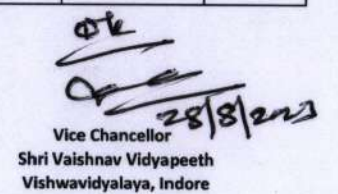 Ok
28/8/2023
Vice Chancellor
Shri Vaishnav Vidyapeeth
Vishwavidyalaya, Indore